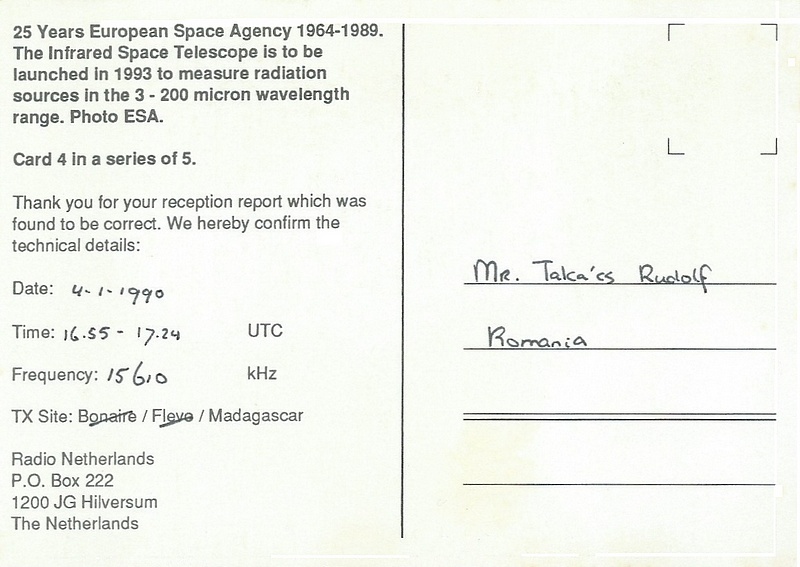 25 Years European Space Agency 1964-1989.
The Infrared Space Telescope is to be
launched in 1993 to measure radiation
sources in the 3 - 200 micron wavelength
range. Photo ESA.
Card 4 in a series of 5.
Thank you for your reception report which was
found to be correct. We hereby confirm the
technical details:
Date: 4-1-1990
Time: 16.55 - 17.24 UTC
Frequency: 15610 kHz
TX Site: Bonaire / Flevo / Madagascar
Radio Netherlands
P.O. Box 222
1200 JG Hilversum
The Netherlands
Mr. Taka'cs Rudolf
Romania